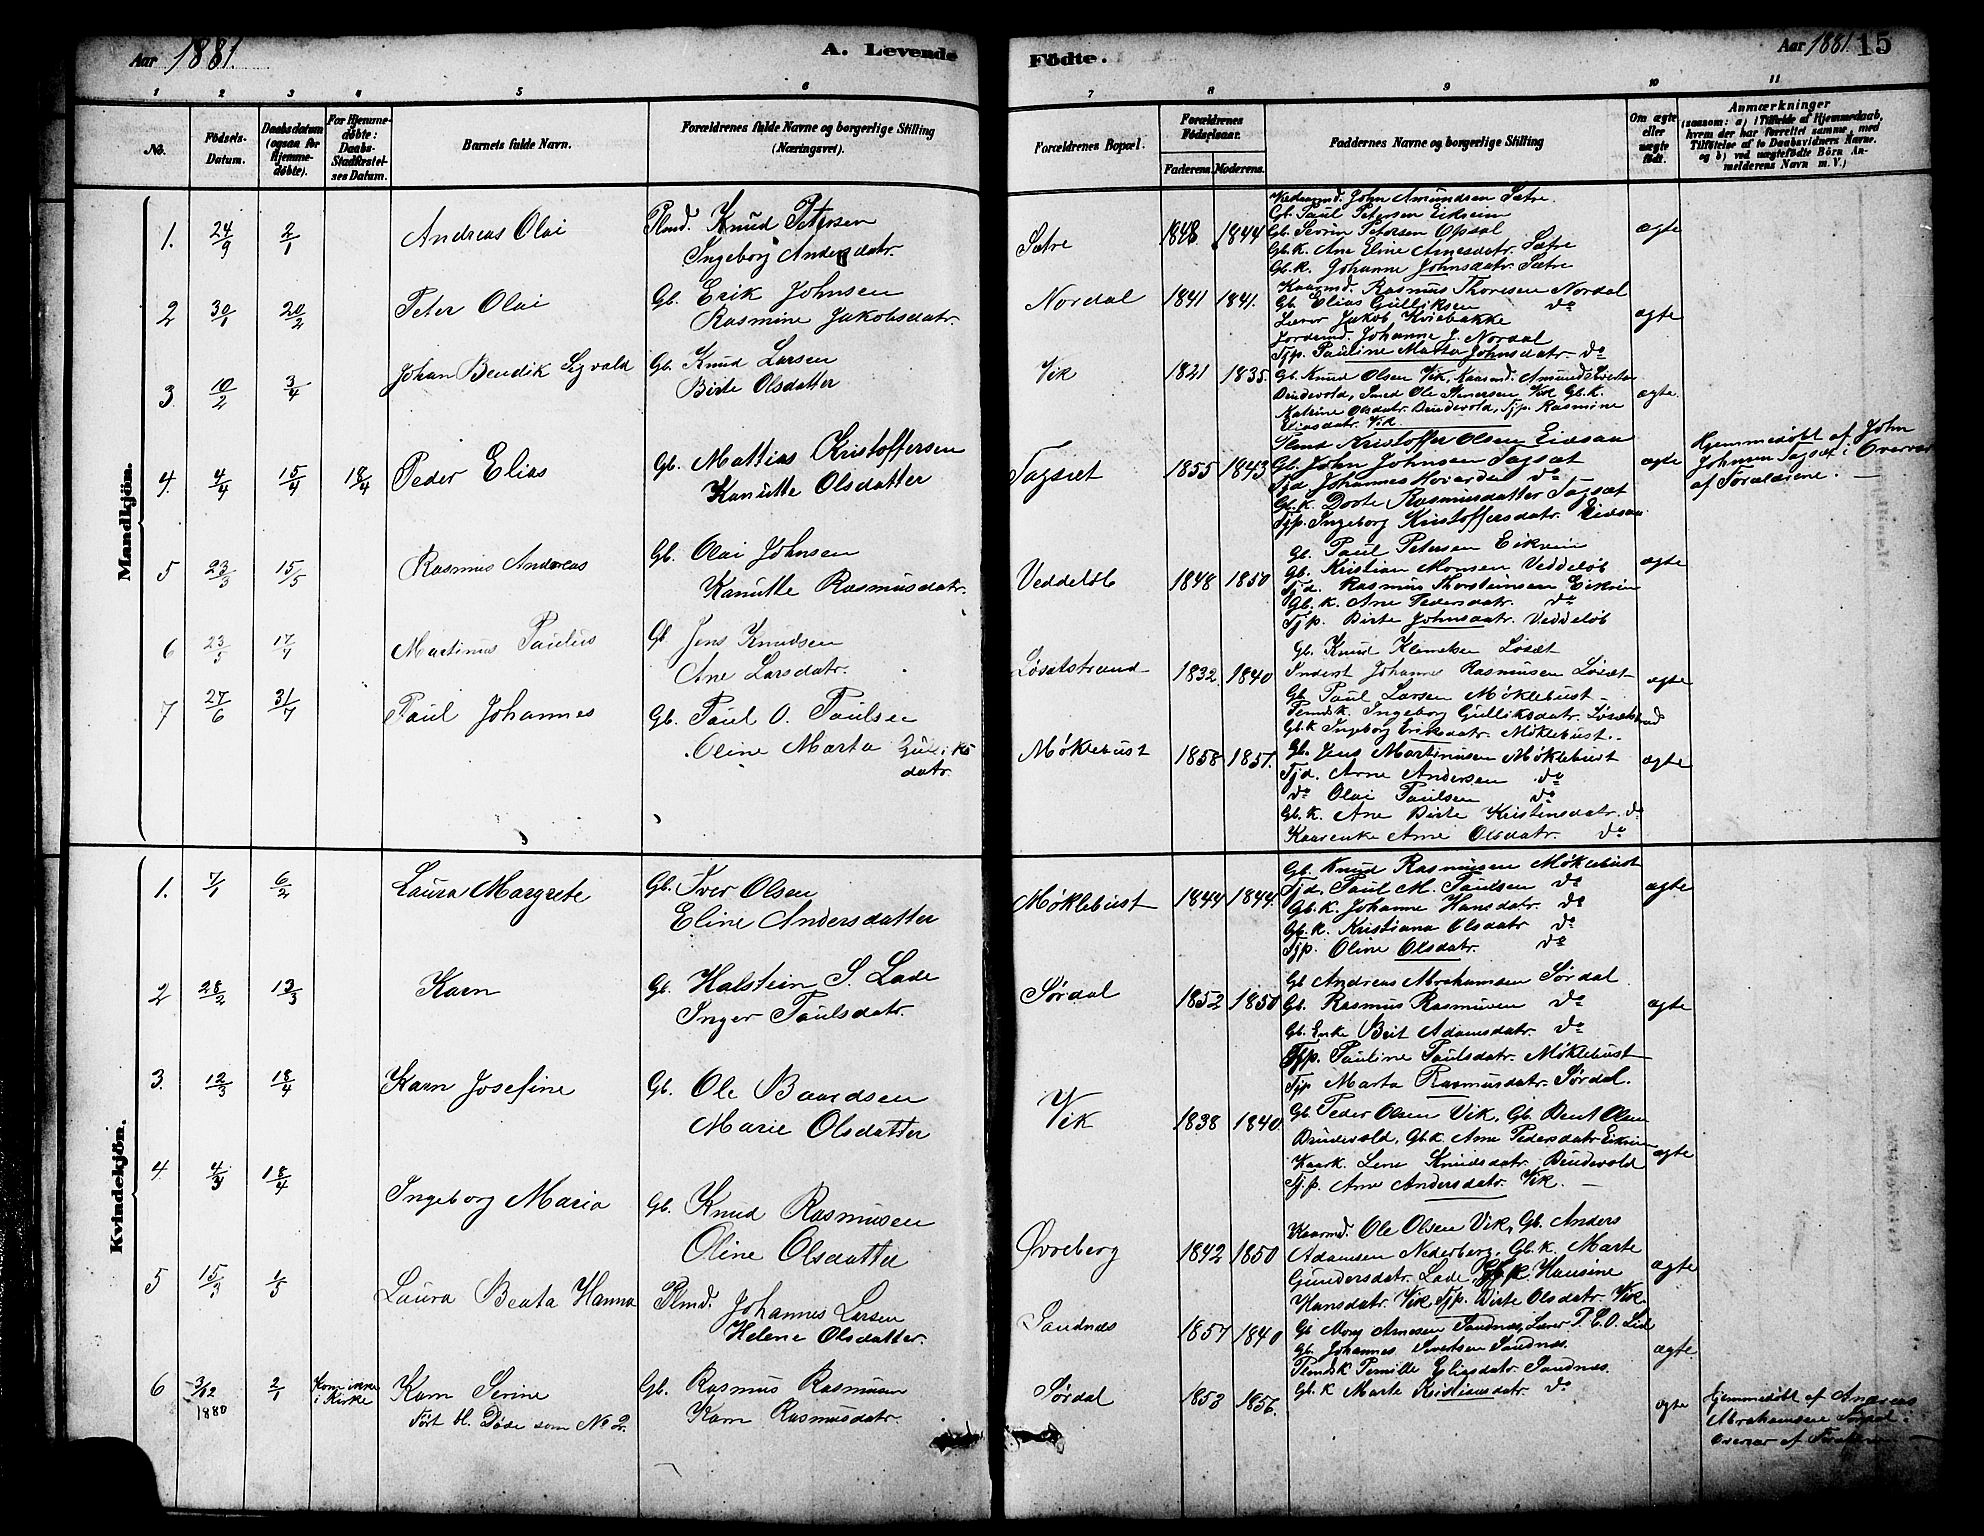 Aar 1881.
A. Levende
Fødte.
Aar 1881. 15
1 2 3 4 5 6 7 8 9 10 11
No.
Fødsels-
Datum.
Daabsdatum
(ogsaa for
Hjemme-
døbte).
For Hjemme-
døbte:
Daabs-
Stadfæstel-
ses Datum.
Barnets fulde Navn.
Forældrenes fulde Navne og borgerlige Stilling
(Næringsvei).
Forældrenes Bopæl.
Forældrenes
Fødselsaar.
Faderens. Moderens.
Faddernes Navne og borgerlige Stilling
Om ægte
eller
uægte
født.
Anmærkninger
(saasom: a) i Tilfælde af Hjemmedaab,
hvem der har forrettet samme, med
Tilføielse af to Daabsvidners Navne.
og b) ved uægtefødte Børn An-
melderens Navn m. V.)
Mandkjön.
1. 24/9 2/1 Andreas Olai
Plmd. Knud Petersen
Ingeborg Andersdatr.
Sætre 1848 1844
John Amundsen Sætre.
Gb. Paul Petersen Eikrem
Gb. Severin Petersen Opsal
Gb.k. Ane Eline Arnesdatr. Sætre
Gb.k. Johanne Johnsdatr. Sætre
ægte
2 30/1 20/2 Peter Olai
Gb. Erik Johnsen
Rasmine Jakobsdatr.
Nordal 1841 1841.
Kaarmd. Rasmus Thoresen Nordal
Gb. Elias Gulliksen do
Lærer Jakob Kviebakke
Jordemd. Johanne J. Nordal
Tjp. Pauline Marta Johnsdatr. do
ægte
3. 10/2 3/4 Johan Bendik Sigvald
Gb. Knud Larsen
Birte Olsdatter
Vik 1821 1835.
Gb. Knud Olsen Vik, Kaarmd. Amund
Bendevold, Smed Ole Iversen Vik Gb.k.
Katrine Olsdatr. Bendevold, Tjp. Rasmine
Eliasdatr. Vik
ægte.
4. 4/4 15/4 18/4 Peder Elias
Gb. Mattias Kristoffersen
Kanutte Olsdatter
Tagsæt 1855 1843
Plmd Kristoffer Olsen Eidsaa
Gb. John Johnsen Tagsæt
Tjd Johannes Hovarden do
Gb.k. Dorte Rasmusdatter Tagsæt
Tjp. Ingeborg Kristoffersdatr. Eidsaa
ægte
Hjemmedøbt af John
Johnsen Tagsæt i Overvær
af Forældrene. —
5 23/3 15/5 Rasmus Andreas
Gb. Olai Johnsen
Kanutte Rasmusdatr.
Veddeløb 1848 1850
Gb. Paul Petersen Eikrem
Gb. Kristian Monsen Veddeløb
Tjd. Rasmus Thorsteinsen Eikrem
Gb.k. Ane Pedersdatr. do
Tjp. Birte Johnsdatr. Veddeløb
ægte
6 23/5 17/7 Martinus Paulus
Gb Jens Knudsen
Ane Larsdatr.
Løsætstrand 1832 1840
Gb. Knud Klemetsen Løsæt
Inderst Johannes Rasmusen Løsæt
Gb. Paul Larsen Møklebust
Plmdsk. Ingeborg Gulliksdatr. Løsætstrand
Gb.k Ingeborg Eriksdatr. Møklebust.
ægte
7 27/6 31/7 Paul Johannes
Gb. Paul O. Paulsen
Oline Marta Gulliks
datr.
Møklebust 1858 1857.
Gb. Jens Martinusen Møklebust
Tjd. Arne Andersen do
do Olai Paulsen do
Gb.k. Ane Birte Kristensdatr. do
Kaarenke Ane Olsdatr. do
ægte
Kvindekjön.
1. 7/1 6/2 Laura Margrete
Gb. Iver Olsen
Eline Andersdatter
Møklebust 1844 1844.
Gb. Knud Rasmusen Møklebust
Tjd. Paul M. Paulsen do
Gb.k. Johanne Hansdatr. do
Gb.k. Kristiana Olsdatr do
Tjp. Oline Olsdatr. do
ægte
2 28/2 13/3 Karn
Gb. Halstein S. Lade
Inger Paulsdatr.
Sørdal 1852 1850
Gb Andreas Abrahamsen Sørdal
Gb. Rasmus Rasmusen do
Gb. Enke Brit Adamsdatr. do
Tjp. Pauline Paulsdatr. Møklebust
Tjp Marta Rasmusdatr. Sørdal.
ægte
3. 12/3 18/4 Karn Josefine
Gb. Ole Baardsen
Marie Olsdatter
Vik 1838 1840.
Gb. Peder Olsen Vik, Gb. Bent Olsen
Bendevold, Gb.k. Ane Pedersdatr Eikrem
Kaark. Lene Knudsdatr. Bendevold
Tj.p. Ane Andersdatr. Vik. —
ægte
4. 4/3 18/4 Ingeborg Maria
Gb. Knud Rasmusen
Oline Olsdatter
Øvreberg 1842 1850
Kaarmd. Ole Olsen Vik, Gb. Anders
Adamsen Nederberg, Gb.k. Marte
Gundersdatr. Lade, Gb.k. Hansine
Hansdatr. Vik Tjp. Birte Olsdatr. Vik.
ægte
5 15/3 1/5 Laura Beata Hanna
Plmd. Johannes Larsen
Helene Olsdatter.
Sandnæs 1857 1840
Gb Mons Arnesen Sandnæs, Lærer P. C. O. Lid
Gb. Johannes Sivertsen Sandnæs.
Plmdsk Pernille Eliasdatr. Sandnæs.
Gb.k Marte Kristiansdatr. do
ægte
6 3/12 1880 2/1 Kom ikke
i Kirke
Karn Serine
Ført bl. Døde som No 2.
Gb. Rasmus Rasmusen
Karn Rasmusdatr.
Sørdal 1853 1856.
ægte
Hjemmedøbt af Andreas
Abrahamsen Sørdal.
Overvær af